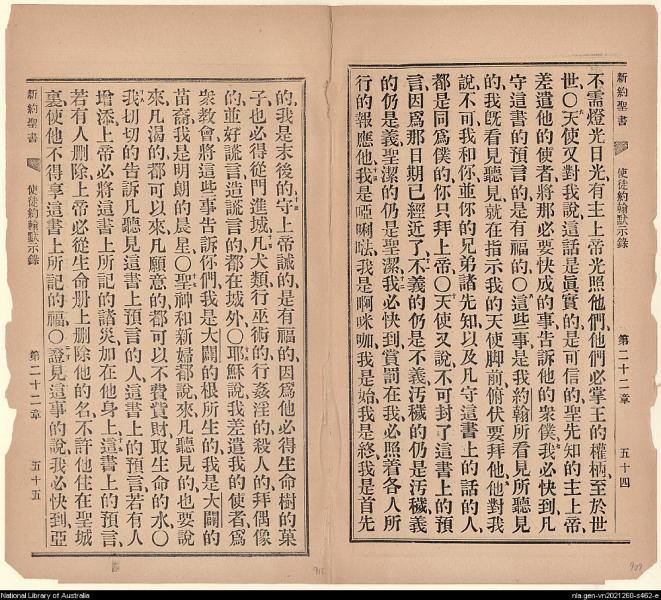 新約聖書 使徒約翰默示錄 第二十二章 五十四
不需燈光日光、有主上帝光照他們、他們必掌王的權柄、至於世
世、〇天使又對我說、這話是眞實的、是可信的、聖先知的主上帝、
差遣他的使者、將那必要快成的事、告訴他的衆僕、我必快到、凡
守這書的預言的是有福的、〇這些事是我約翰所看見所聽見
的、我旣看見聽見、就在指示我的天使脚前俯伏要拜他、他對我
說不可、我和你並你的兄弟諸先知、以及凡守這書上的話的人、
都是同爲僕的、你只拜上帝、〇天使又說、不可封了這書上的預
言、因爲那日期已經近了、不義的仍是不義、汚穢的仍是汚穢、義
的仍是義、聖潔的仍是聖潔、我必快到、賞罰在我、必照着各人所
行的報應他、我是啞唎㕵、我是啊咪咖、我是始、我是終、我是首先
的、我是末後的、守上帝誡的是有福的、因爲他必得生命樹的菓
子、也必得從門進城、凡犬類、行巫術的、行姦淫的、殺人的、拜偶像
的、並好謊言造謊言的、都在城外、〇耶穌說、我差遣我的使者、爲
衆教會將這些事告訴你們、我是大闢的根所生的、我是大闢的
苗裔、我是明朗的晨星、〇聖神和新婦都說來、凡聽見的也要說
來、凡渴的都可以來、凡願意的都可以不費貲財取生命的水、〇
我切切的告訴凡聽見這書上預言的人、這書上的預言、若有人
增添、上帝必將這書上所記的諸災加在他身上、這書上的預言、
若有人刪除、上帝必從生命册上刪除他的名、不許他住在聖城
裏、使他不得享這書上所記的福、〇證見這事的說、我必快到、亞
新約聖書 使徒約翰默示錄 第二十二章 五十五
National Library of Australia
nla.gen-vn2021260-s462-e